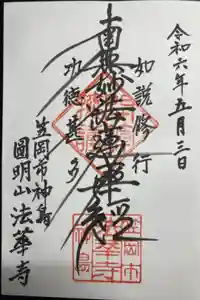 令和六年五月三日
如説修行
南無妙法蓮華経
功徳甚多
笠岡市神島
圓明山法華寺